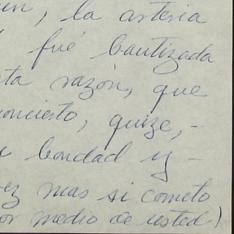 la arteria
fué bautizada
ta razón, que
concierto, quize,-
bondad y -
ez mas si cometo
or medio de usted)